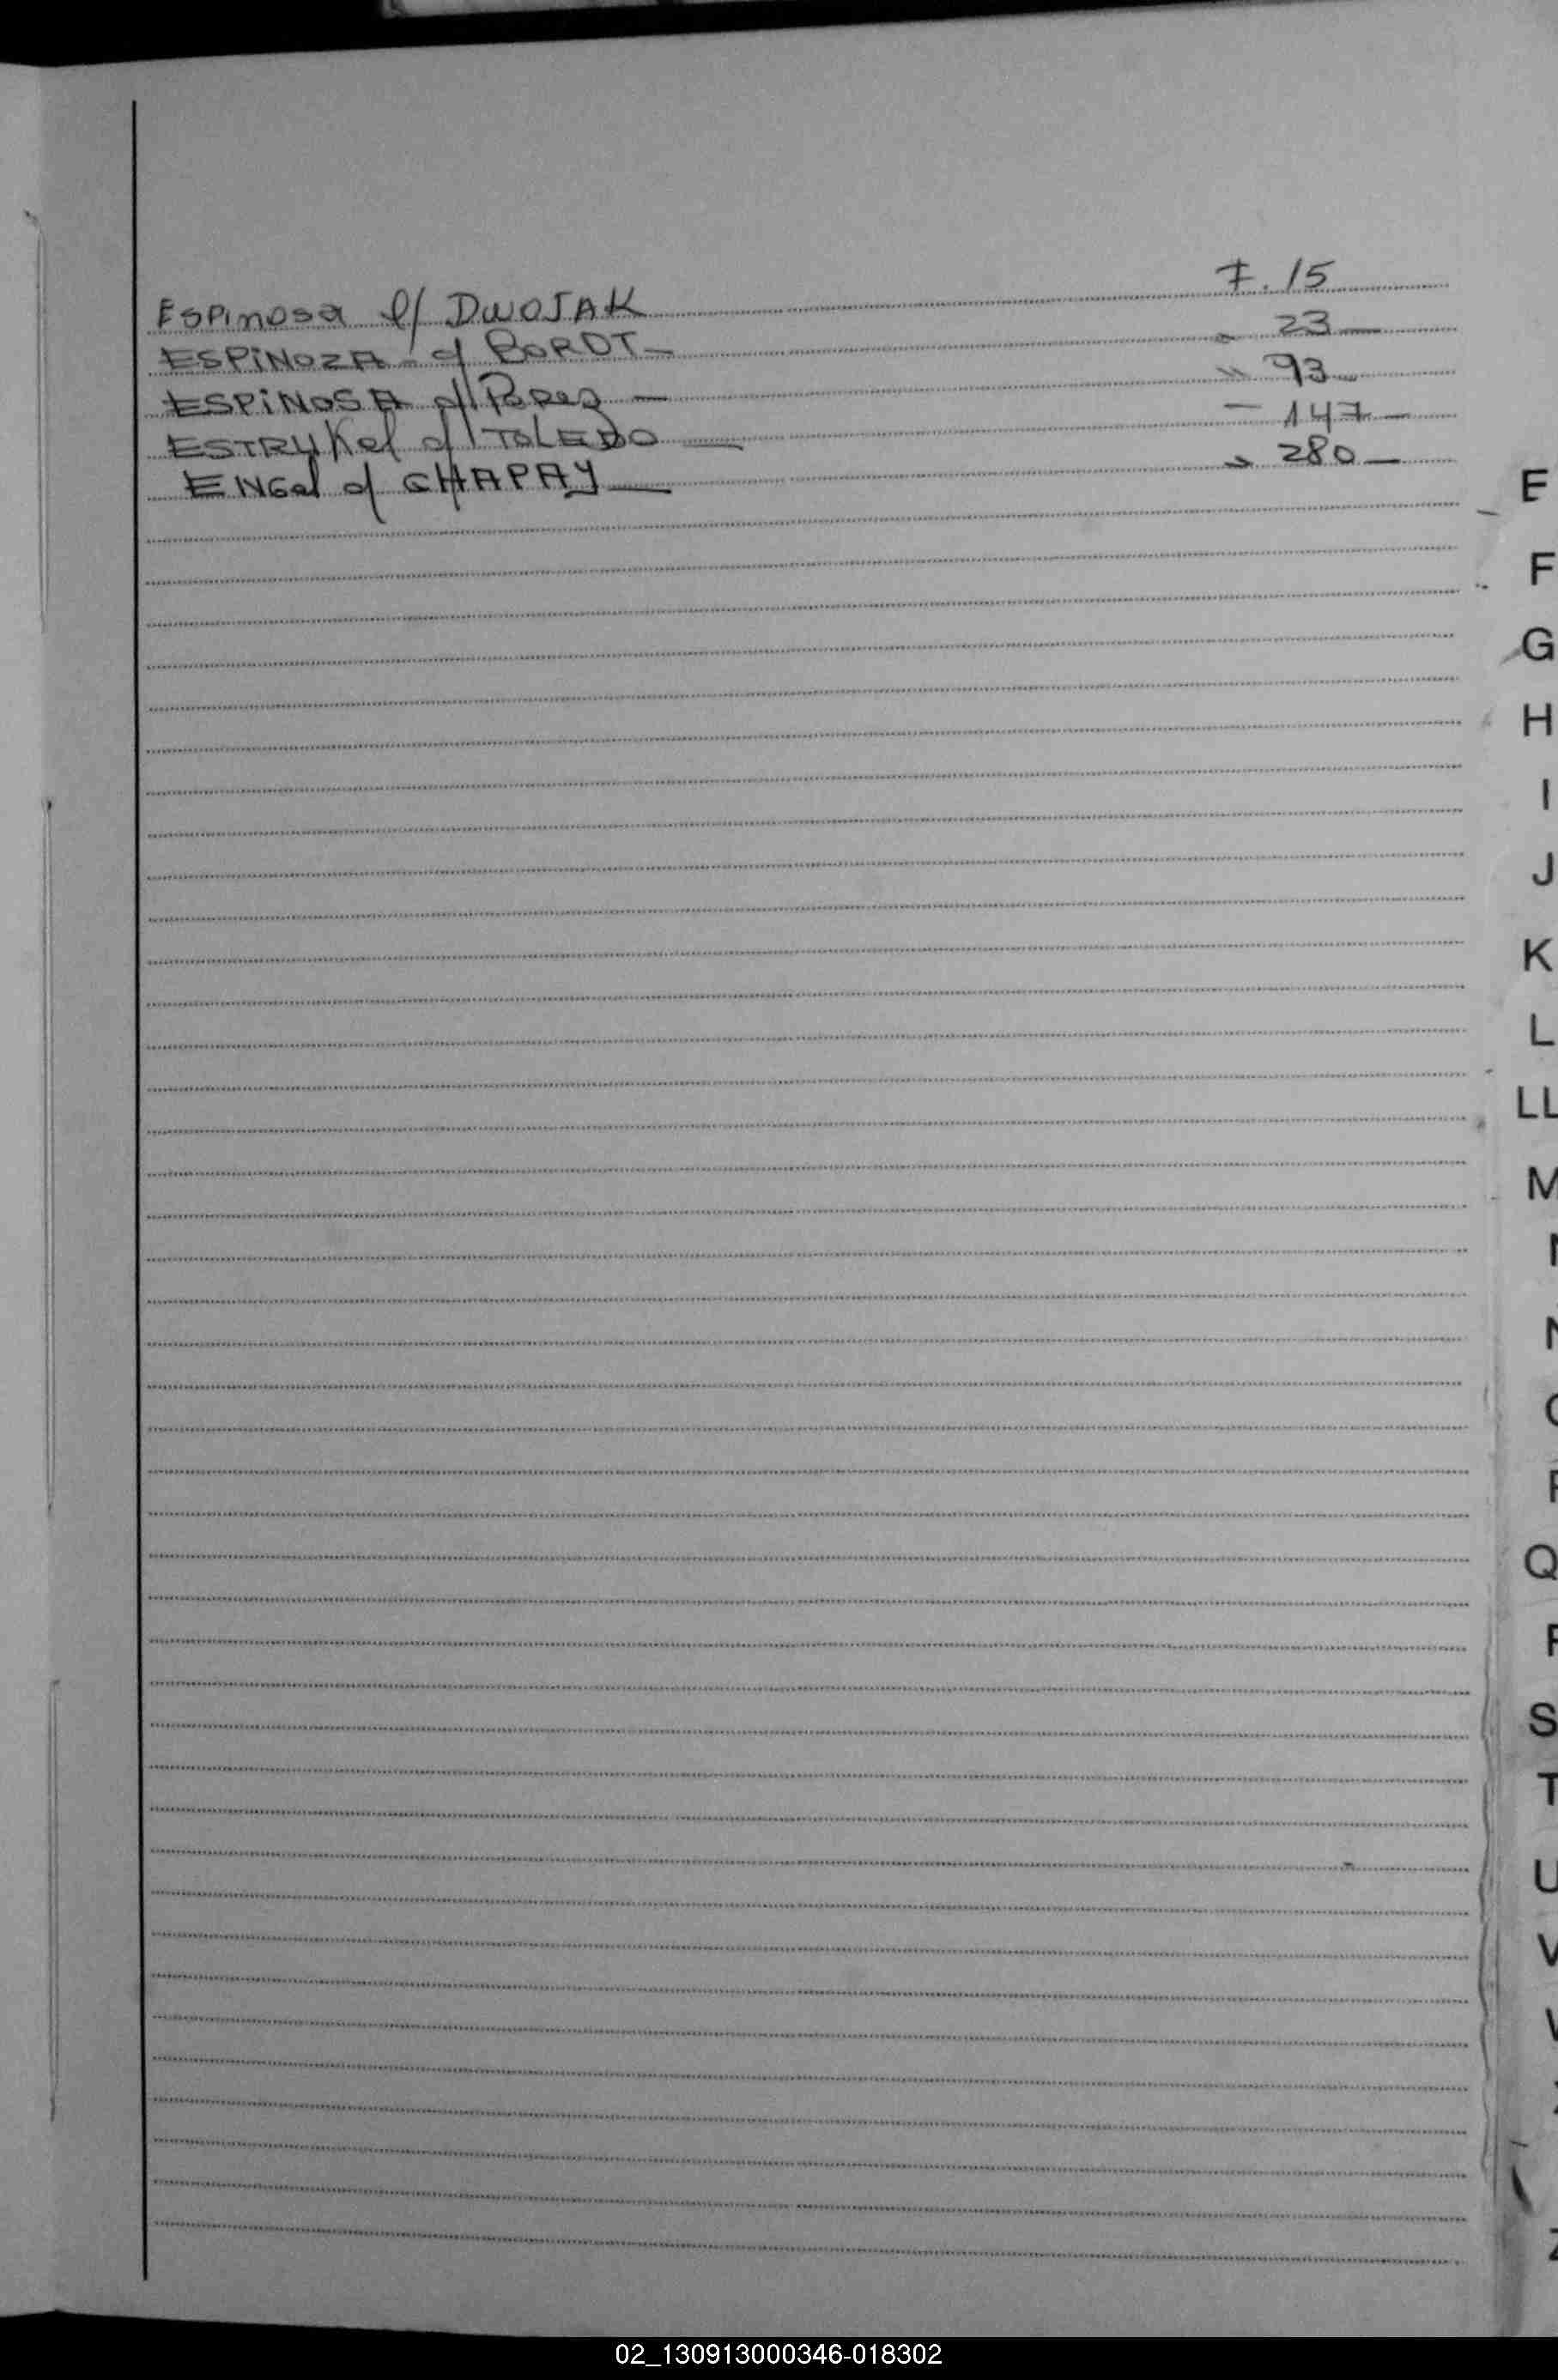 Espinosa c/ DWOJAK F. 15
ESPiNOZA - c/ BORDT - " 23 -
ESPiNOSA c/ Perez - " 93 -
ESTRYKel c/ TOLEDO - " 147 -
ENGel c/ CHAPAY - " 280 -
E
F
G
H
I
J
K
L
LL
M
N
Q
S
T
U
V
Z
02_130913000346-018302